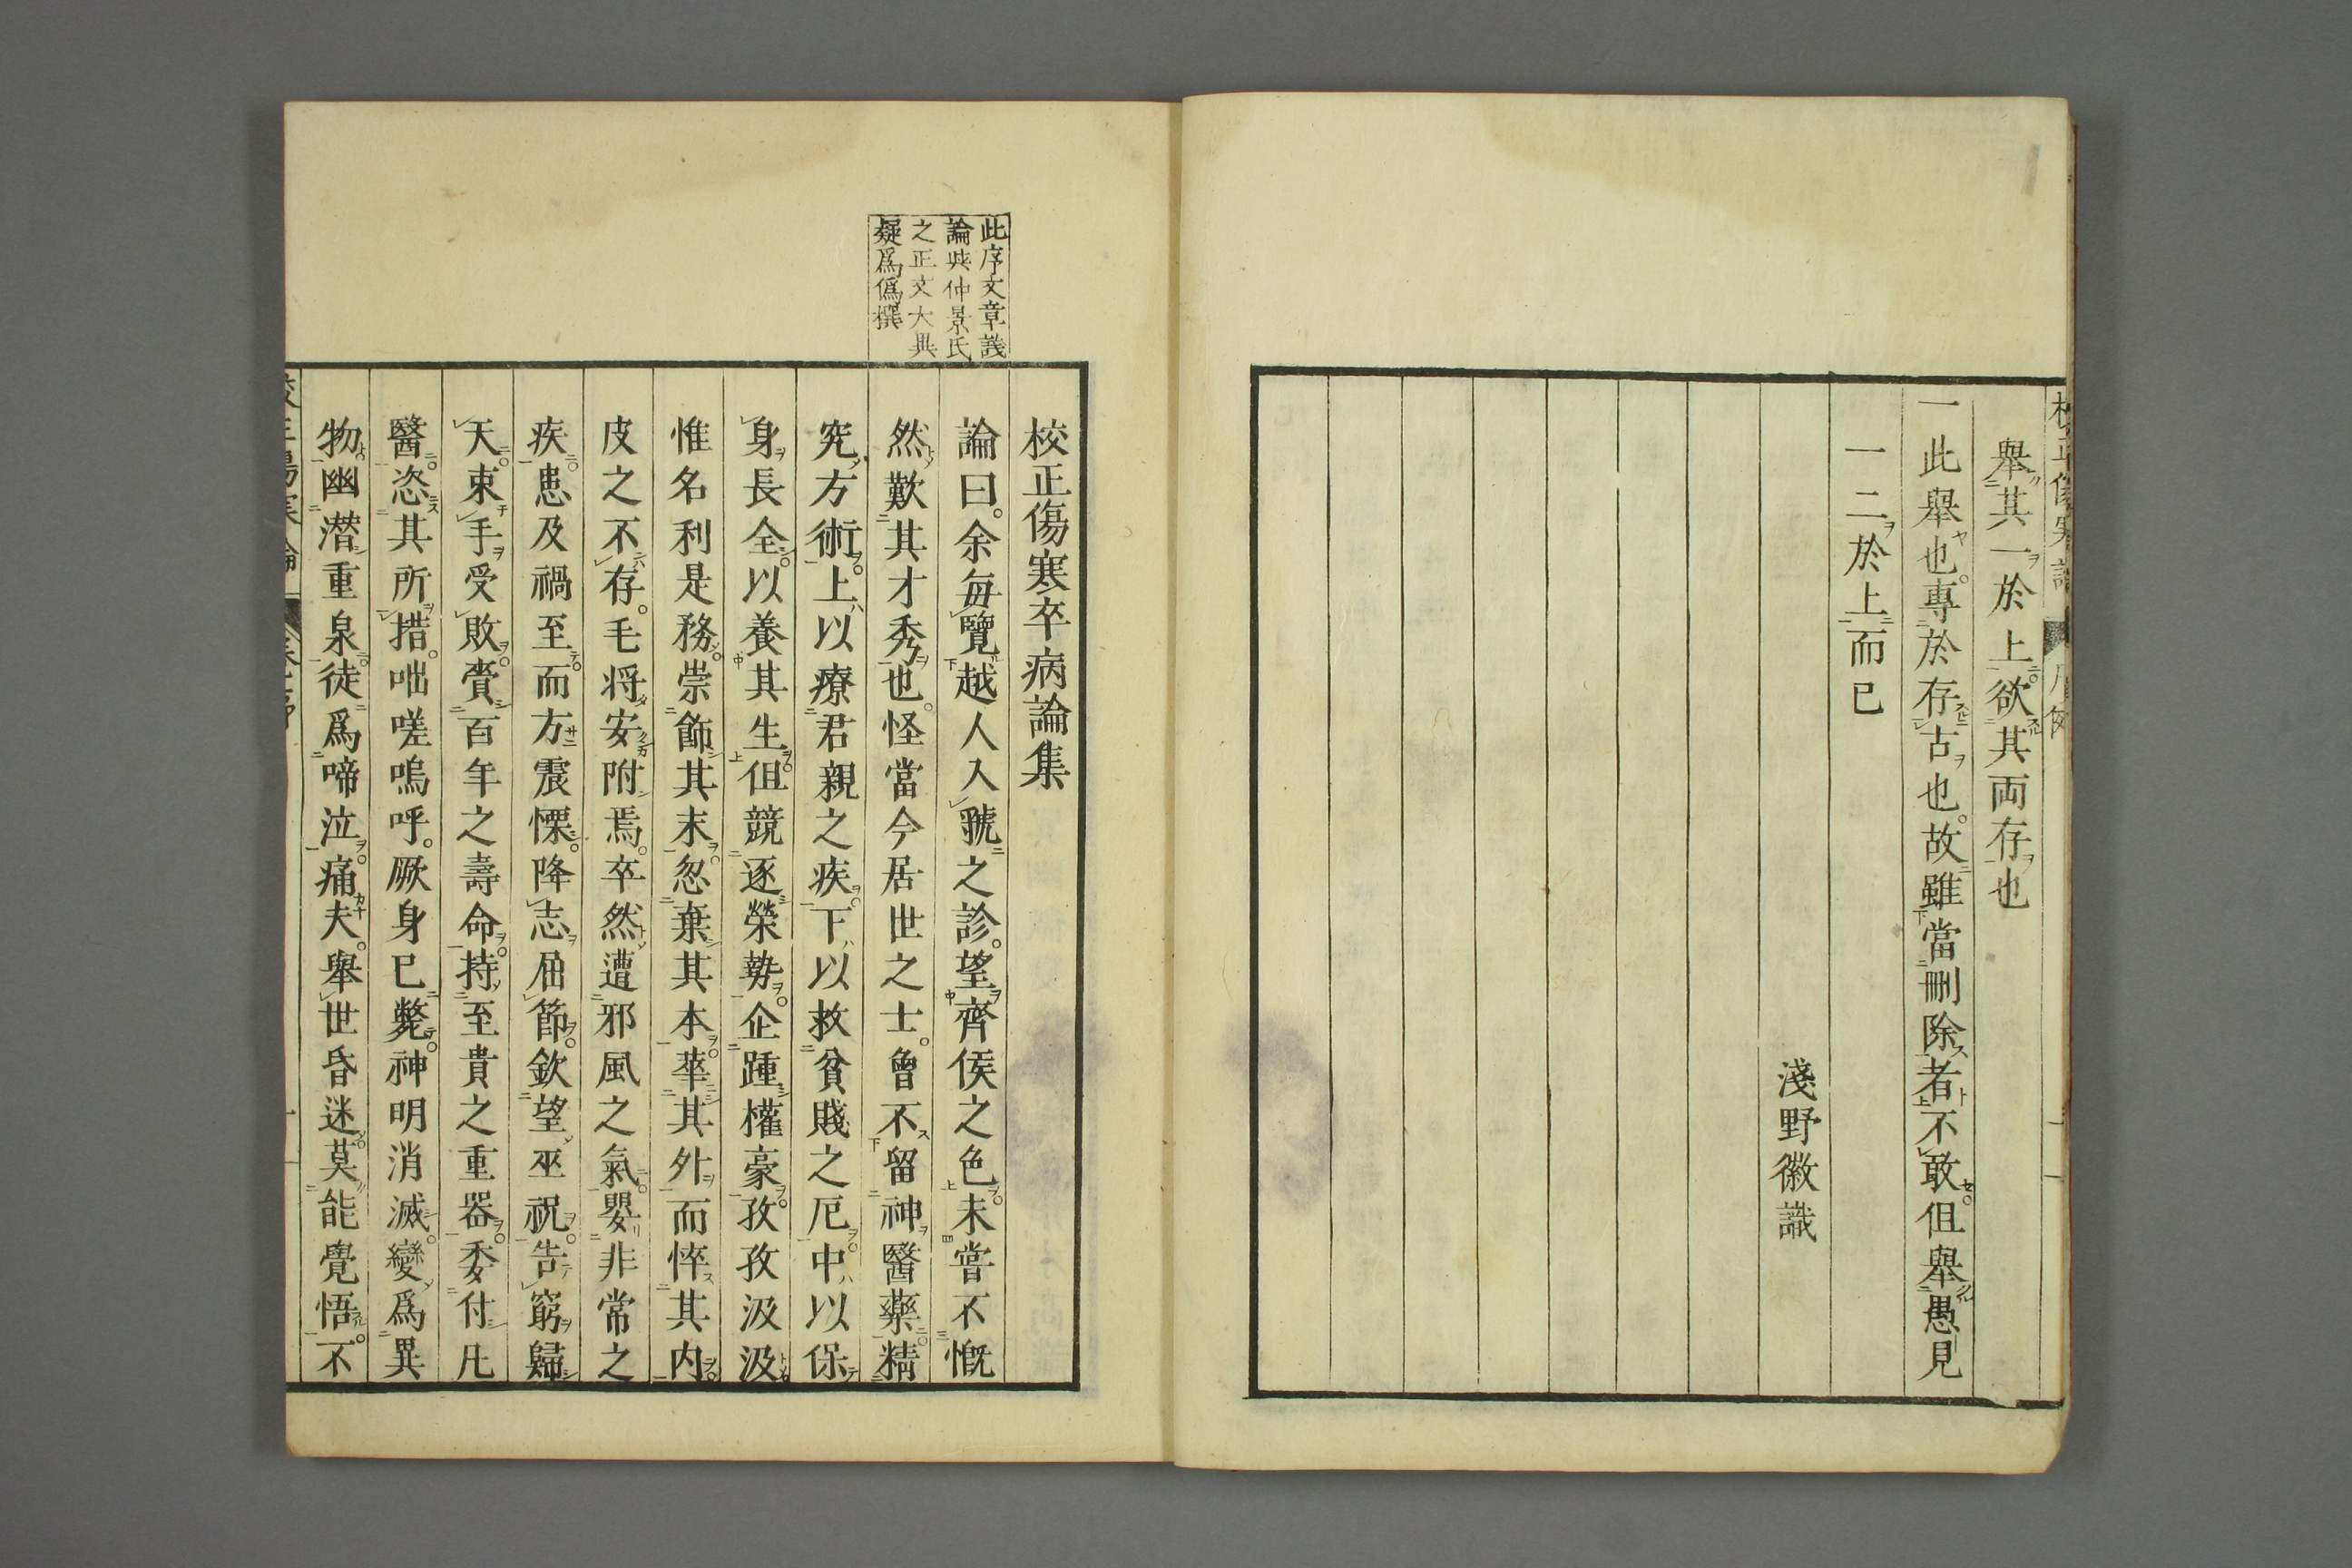 舉其一於上欲其両存也
一此舉也專於存古也故雖當刪除者不敢但舉愚見
一二於上而已
淺野徽識
此序文章議
論與仲景氏
之正文大異
疑爲僞撰
校正傷寒卒病論集
論曰余毎覽越人入虢之診望齊侯之色未嘗不慨
然歎其才秀也怪當今居世之士曾不留神醫藥精
究方術上以療君親之疾下以救貧賤之厄中以保
身長全以養其生但競逐榮勢企踵權豪孜孜汲汲
惟名利是務崇飾其末忽棄其本華其外而悴其内
皮之不存毛将安附焉卒然遭邪風之氣嬰非常之
疾患及禍至而方震慄降志屈節欽望巫祝告窮歸
天束手受敗賷百年之壽命持至貴之重器委付凡
醫恣其所措咄嗟嗚呼厥身已斃神明消滅變爲異
物幽潛重泉徒爲啼泣痛夫舉世昏迷莫能覺悟不